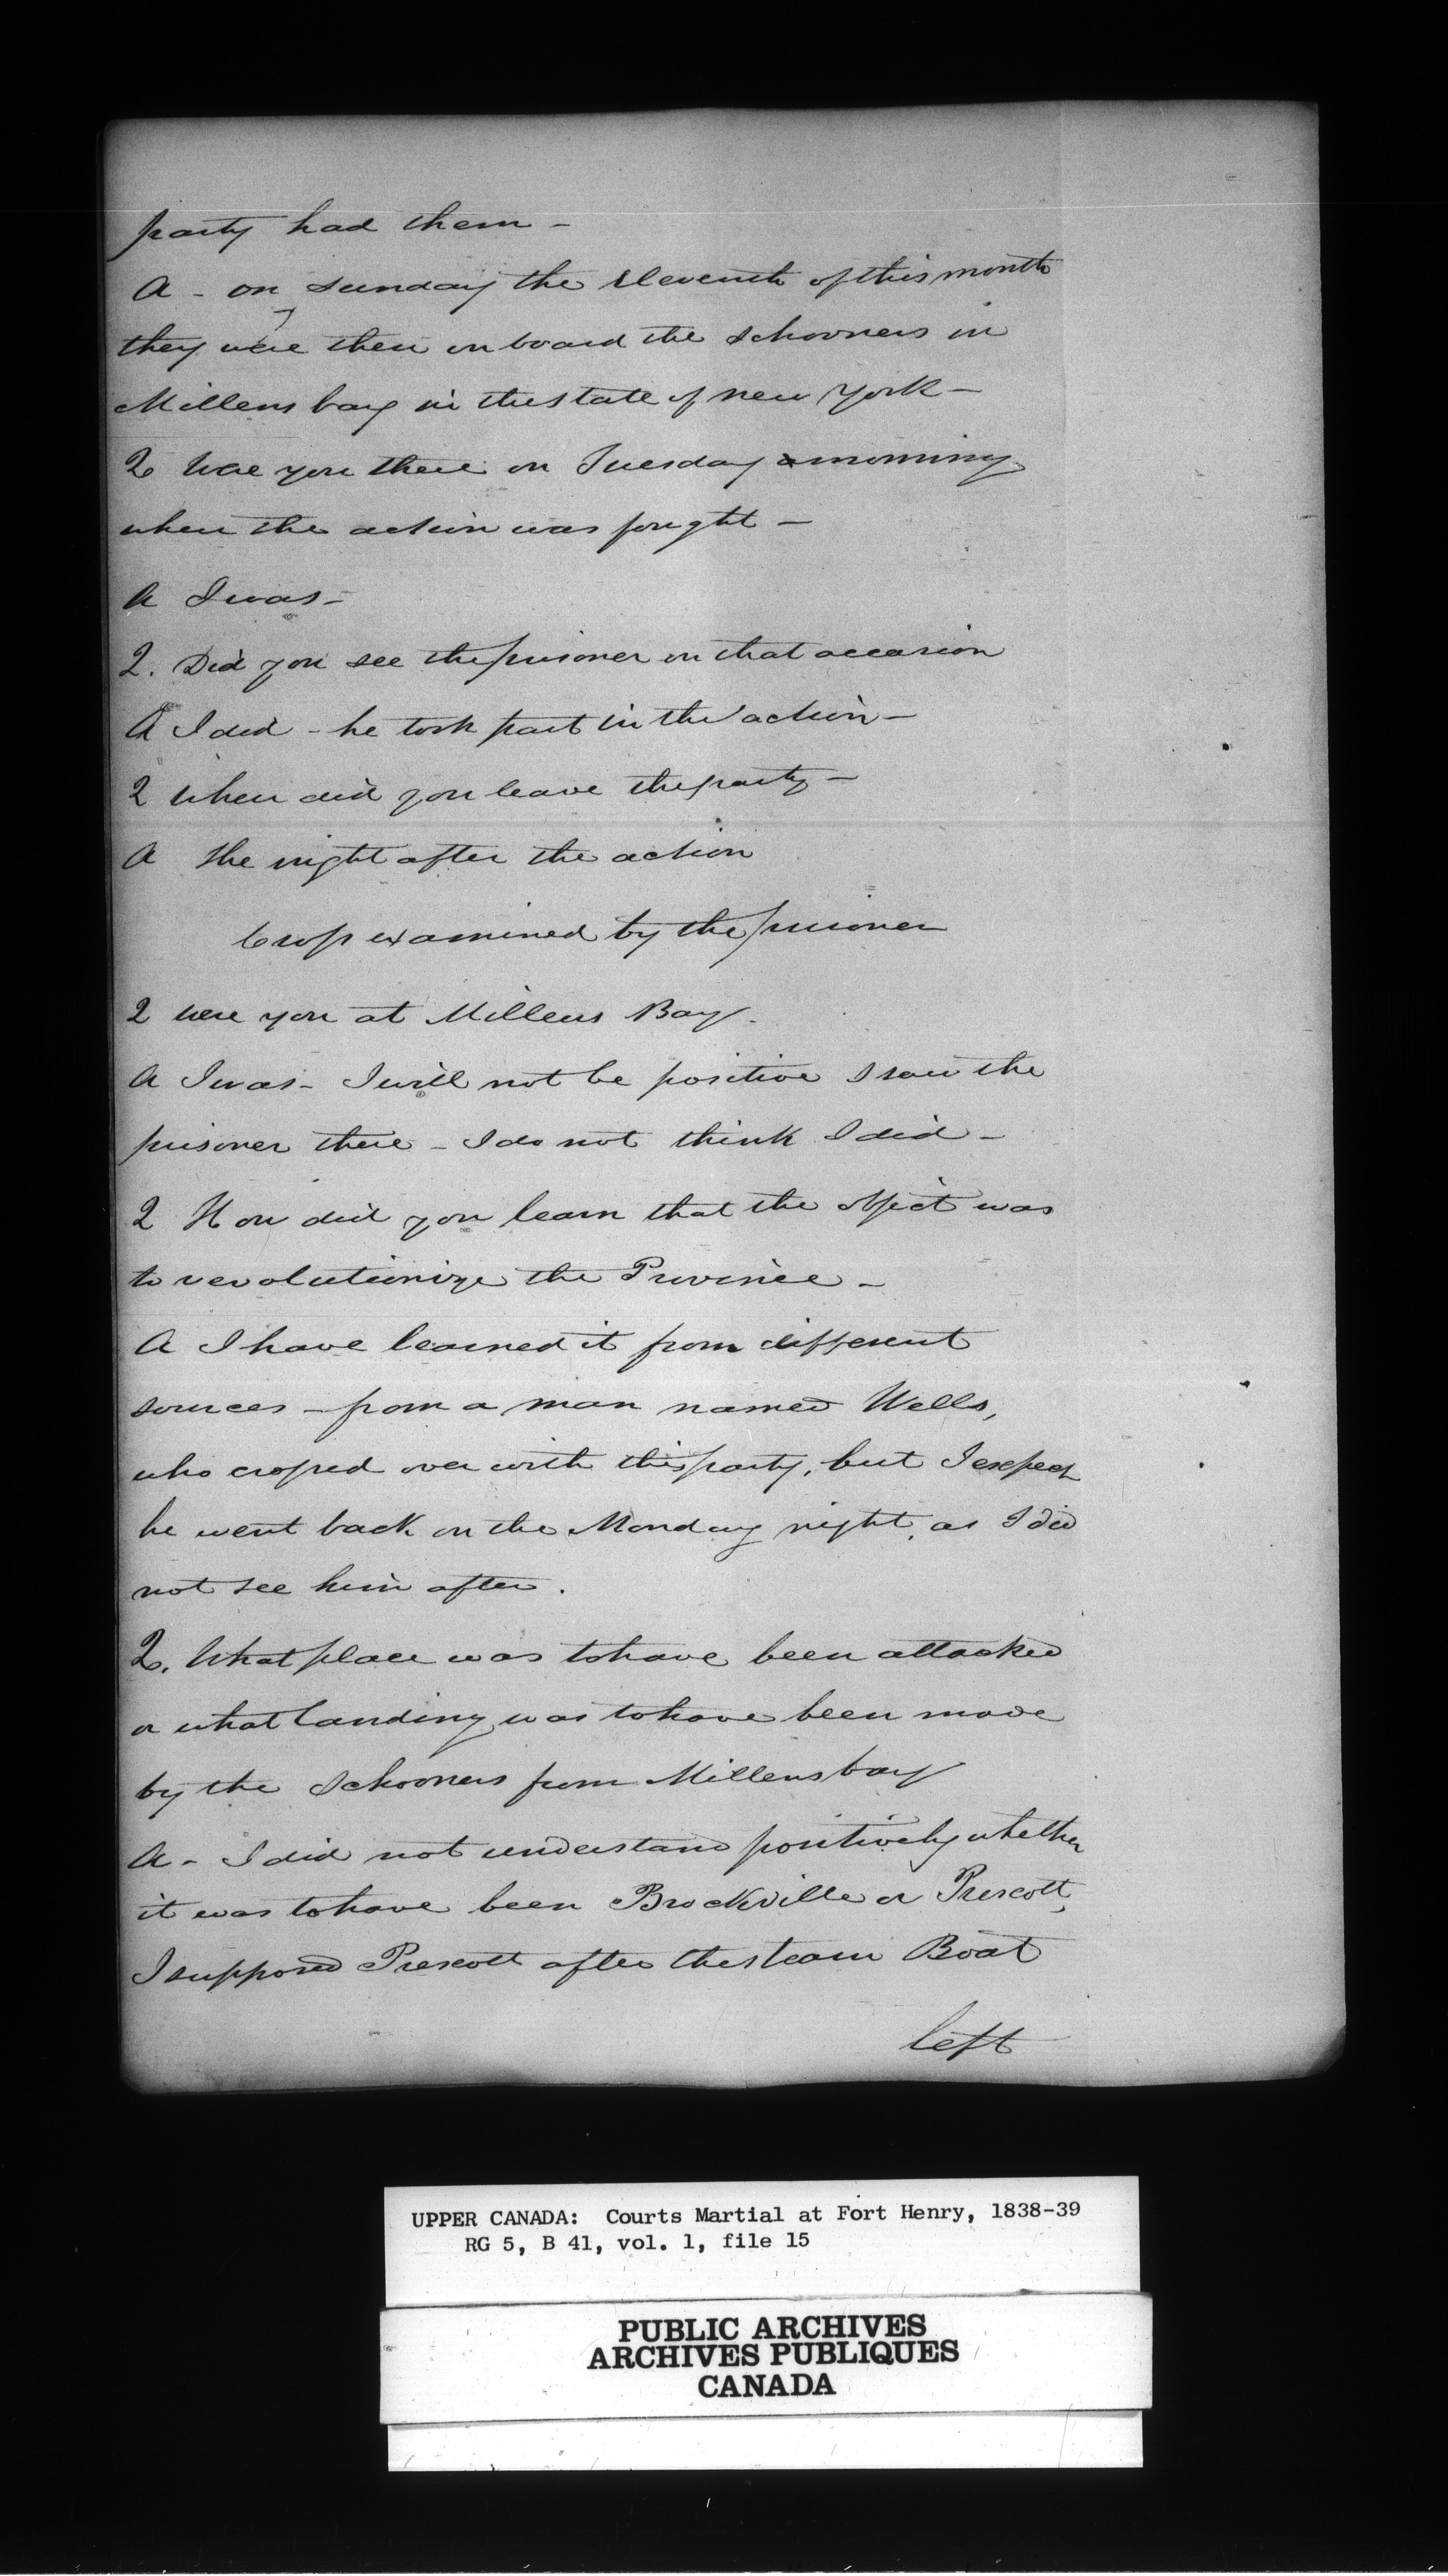 party had them -
A - on Sunday the Eleventh of this month
they were then on board the Schooners in
Millens bay in the State of New York -
Q Were you there on Tuesday morning
when the action was fought -
A I was -
Q. Did you see the prisoner on that occasion
A I did - he took part in the action -
Q When did you leave the party -
A The night after the action
Cross examined by the prisoner
Q Were you at Millens Bay -
A I was - I will not be positive I saw the
prisoner there - I do not think I did -
Q How did you learn that the object was
to revolutionize the Province -
A I have learned it from different
sources - from a man named Wells,
who crossed over with this party, but I expect
he went back on the Monday night, as I did
not see him after.
Q. What place was to have been attacked
or what landing was to have been made
by the Schooners from Millens bay
A - I did not understand positively whether
it was to have been Brockville or Prescott,
I supposed Prescott after the Steam Boat
left
UPPER CANADA: Courts Martial at Fort Henry, 1838-39
RG 5, B 41, vol. 1, file 15
PUBLIC ARCHIVES
ARCHIVES PUBLIQUES
CANADA